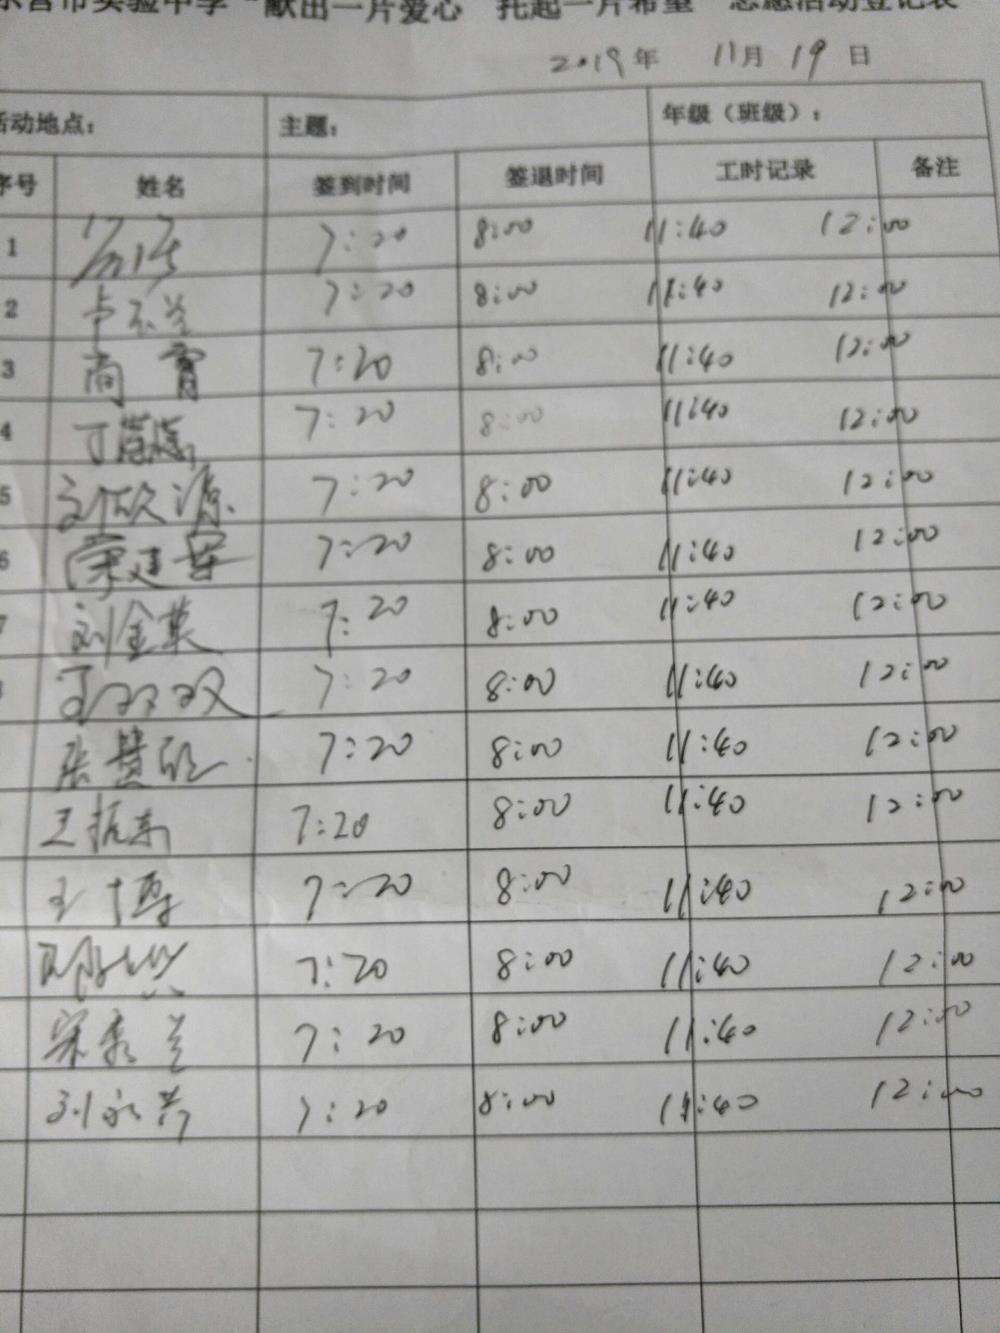 东营市实验中学“献出一片爱心 托起一片希望”志愿活动登记表
2019年 11月 19日
活动地点： 主题： 年级（班级）：
序号 姓名 签到时间 签退时间 工时记录 备注
1 7:20 8:00 11:40 12:00
2 7:20 8:00 11:40 12:00
3 商霄 7:20 8:00 11:40 12:00
4 7:20 8:00 11:40 12:00
5 刘欣源 7:20 8:00 11:40 12:00
6 荣建军 7:20 8:00 11:40 12:00
7 刘金英 7:20 8:00 11:40 12:00
王双双 7:20 8:00 11:40 12:00
张慧欣 7:20 8:00 11:40 12:00
王振东 7:20 8:00 11:40 12:00
王博 7:20 8:00 11:40 12:00
7:20 8:00 11:40 12:00
宋秀兰 7:20 8:00 11:40 12:00
刘永芳 7:20 8:00 11:40 12:00